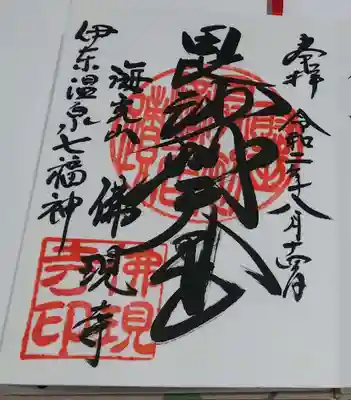 奉拝 令和二年八月十四日
毘沙門天
海光山
佛現寺
伊东温泉七福神
佛現
寺印